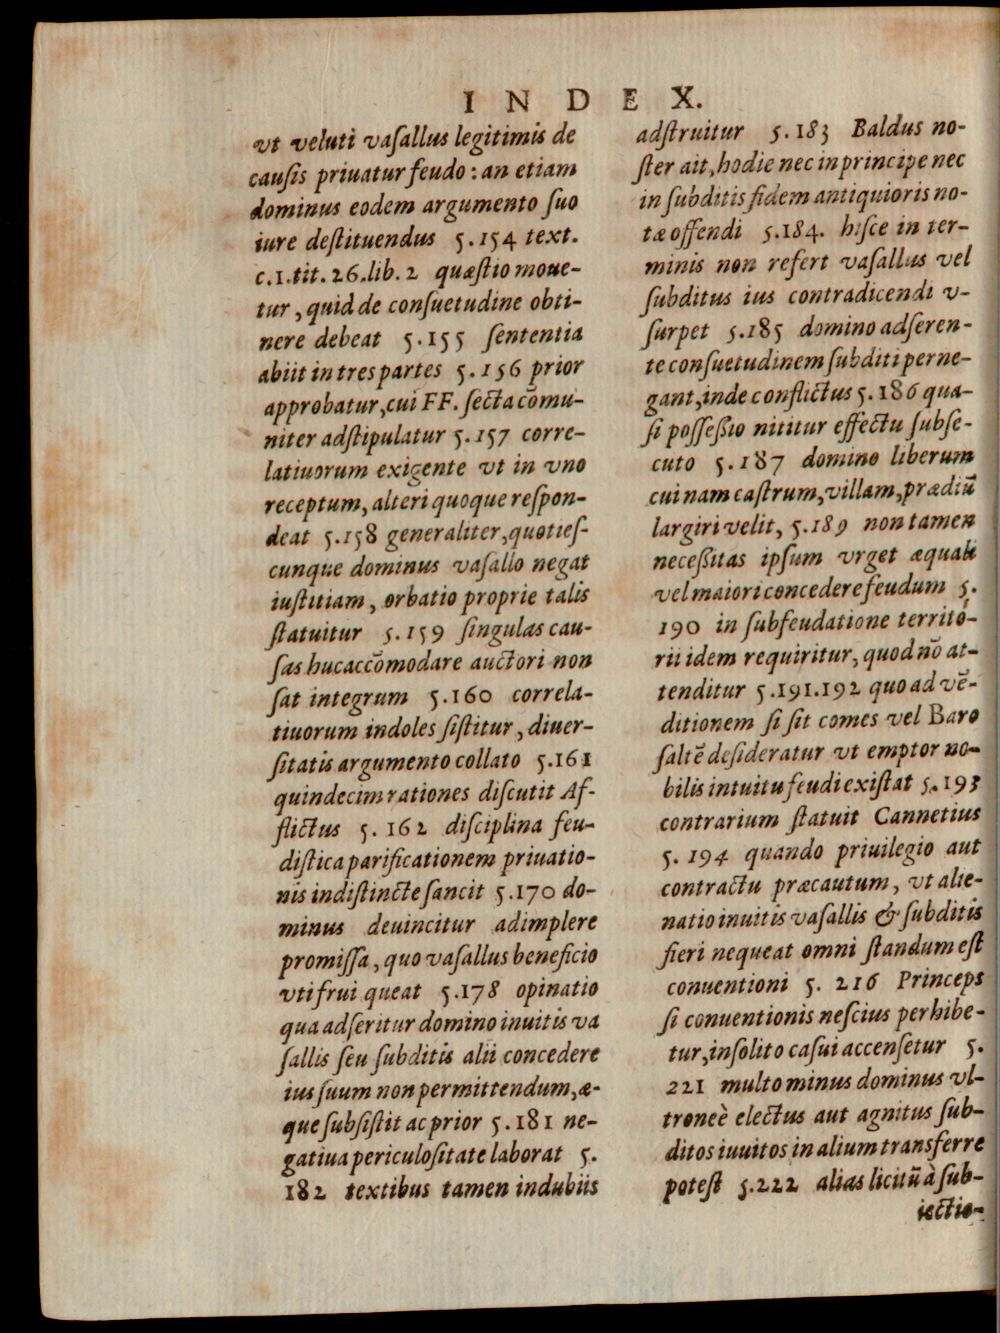 INDEX.
vt veluti vaſallus legitimis de
cauſis priuatur feudo: an etiam
dominus eodem argumento ſuo
iure deſtituendus 5.154 text.
c.1.tit.26.lib.2 quæſtio moue-
tur, quid de conſuetudine obti-
nere debeat 5.155 ſententia
abiit in tres partes 5.156 prior
approbatur, cui FF. ſecta cōmu-
niter adſtipulatur 5.157 corre-
latiuorum exigente vt in vno
receptum, alteri quoque reſpon-
deat 5.158 generaliter, quotieſ-
cunque dominus vaſallo negat
iuſtitiam, orbatio proprie talis
ſtatuitur 5.159 ſingulas cau-
ſas huc accōmodare auctori non
ſat integrum 5.160 correla-
tiuorum indoles ſiſtitur, diuer-
ſitatis argumento collato 5.161
quindecim rationes diſcutit Af-
flictus 5.162 diſciplina feu-
diſtica parificationem priuatio-
nis indiſtincte ſancit 5.170 do-
minus deuincitur adimplere
promiſſa, quo vaſallus beneficio
vti frui queat 5.178 opinatio
qua adſeritur domino inuitis va
ſallis ſeu ſubditis alii concedere
ius ſuum non permittendum, æ-
que ſubſiſtit ac prior 5.181 ne-
gatiua periculoſitate laborat 5.
182 textibus tamen indubiis
adſtruitur 5.183 Baldus no-
ſter ait, hodie nec in principe nec
in ſubditis fidem antiquioris no-
tæ offendi 5.184. hiſce in ter-
minis non refert vaſallus vel
ſubditus ius contradicendi v-
ſurpet 5.185 domino adſeren-
te conſuetudinem ſubditi perne-
gant, inde conflictus 5.186 qua-
ſi poſſeßio nititur effectu ſubſe-
cuto 5.187 domino liberum
cuinam caſtrum, villam, prædiū
largiri velit, 5.189 non tamen
neceßitas ipſum vrget æquali
vel maiori concedere feudum 5.
190 in ſubfeudatione territo-
rii idem requiritur, quod nō at-
tenditur 5.191.192 quo ad vē-
ditionem ſi ſit comes vel Baro
ſaltē deſideratur vt emptor no-
bilis intuitu feudi exiſtat 5.193
contrarium ſtatuit Cannetius
5.194 quando priuilegio aut
contractu præcautum, vt alie-
natio inuitis vaſallis & ſubditis
fieri nequeat omni ſtandum eſt
conuentioni 5. 216 Princeps
ſi conuentionis neſcius perhibe-
tur, inſolito caſui accenſetur 5.
221 multo minus dominus vl-
troneè electus aut agnitus ſub-
ditos iuuitos in alium transferre
poteſt 5.222 alias licitū à ſub-
iectio-